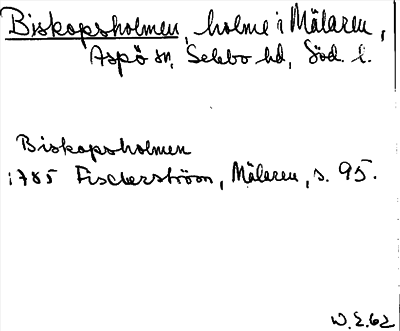 Biskopsholmen, holme i Mälaren,
Aspö sn, Selebo hd, Söd. l.
Biskopsholmen
1785 Fischerström, Mälaren, s. 95.
W.E.62